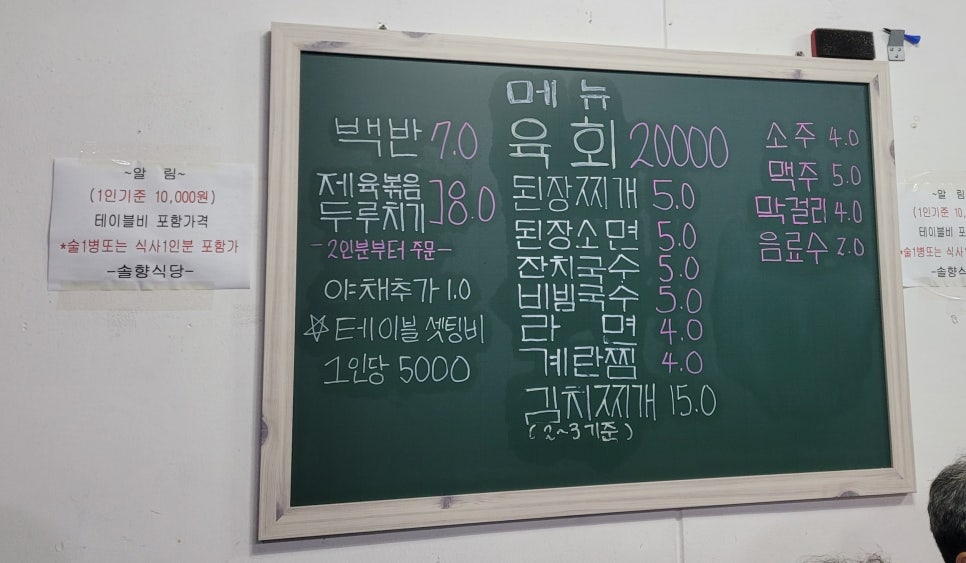 ~알 림~
(1인기준 10,000원)
테이블비 포함가격
*술1병또는 식사1인분 포함가
-솔향식당-
메 뉴
백반 7.0
제육볶음
두루치기 ]8.0
-2인분부터 주문-
야채추가 1.0
☆테이블 셋팅비
1인당 5000
육 회 20000
된장찌개 5.0
된장소면 5.0
잔치국수 5.0
비빔국수 5.0
라 면 4.0
계란찜 4.0
김치찌개 15.0
(2~3기준)
소주 4.0
맥주 5.0
막걸리 4.0
음료수 2.0
~알
(1인기준 10,
테이블비 포
*술1병또는 식사1
-솔향식